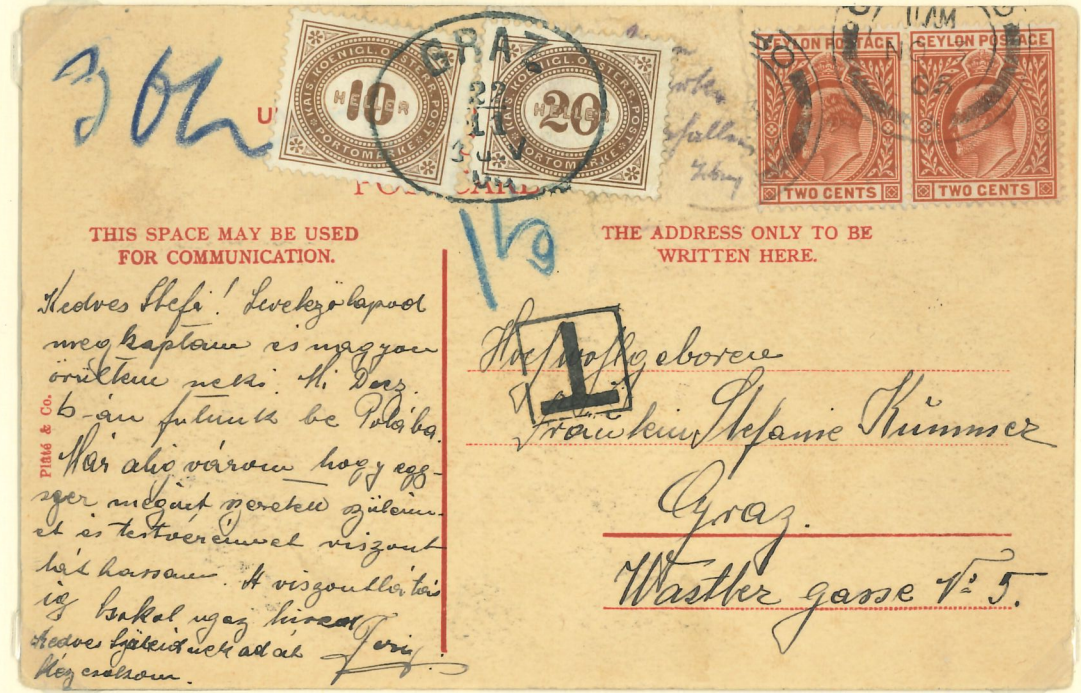 30h
GRAZ
22
11
KAIS. KOENIGL. OESTERR. POST
10 HELLER
PORTOMARKE
KAIS. KOENIGL. OESTERR. POST
20 HELLER
PORTOMARKE
11 AM
NO
06
CEYLON POSTAGE
TWO CENTS
CEYLON POSTAGE
TWO CENTS
POST CARD
THIS SPACE MAY BE USED
FOR COMMUNICATION.
THE ADDRESS ONLY TO BE
WRITTEN HERE.
Plâté & Co.
Kedves Stefi! Levelező lapod
meg kaptam és nagyon
örültem neki. Mi Dez.
6-án futunk be Polába.
Már alig várom hogy egy-
szer megint szeretett szüleim-
et és testvéreimet viszont
láthassam. A viszontlátás
ig
Kedves Szüleidnek adál
Kézcsokom.
T
Hochwohlgeboren
Fräulein Stefanie Kümmer
Graz.
Wastler gasse No 5.